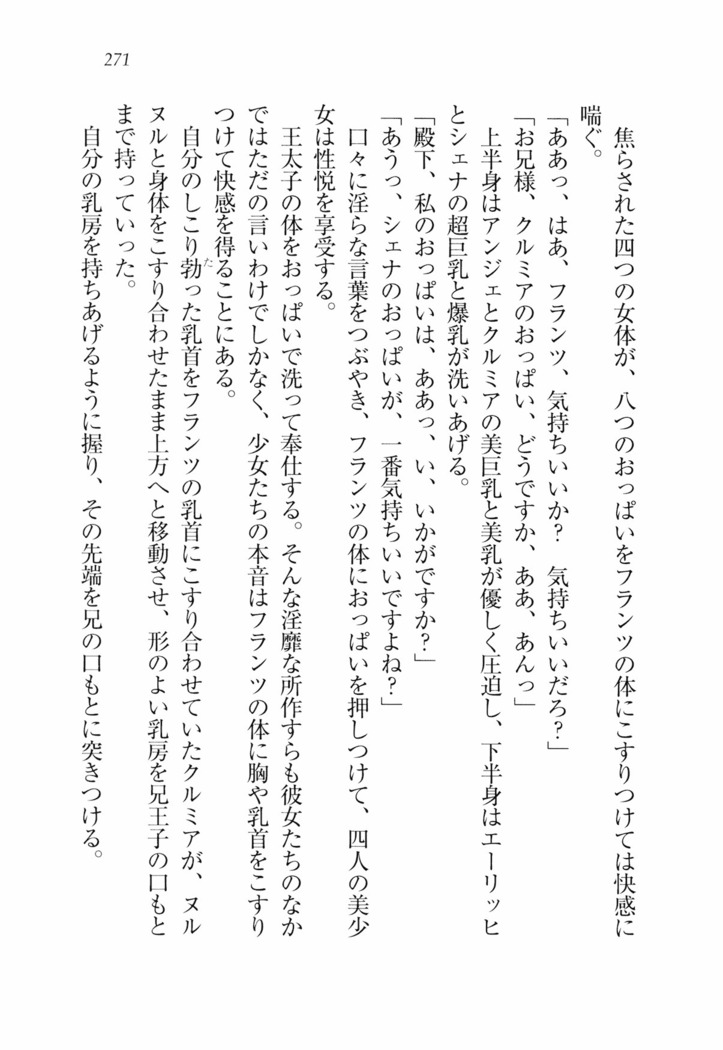 271
焦らされた四つの女体が、八つのおっぱいをフランツの体にこすりつけては快感に
喘ぐ。
「ああっ、はあ、フランツ、気持ちいいか？　気持ちいいだろ？」
「お兄様、クルミアのおっぱい、どうですか、ああ、あんっ」
上半身はアンジェとクルミアの美巨乳と美乳が優しく圧迫し、下半身はエーリッヒ
とシェナの超巨乳と爆乳が洗いあげる。
「殿下、私のおっぱいは、ああっ、い、いかがですか？」
「あうっ、シェナのおっぱいが、一番気持ちいいですよね？」
口々に淫らな言葉をつぶやき、フランツの体におっぱいを押しつけて、四人の美少
女は性悦を享受する。
王太子の体をおっぱいで洗って奉仕する。そんな淫靡な所作すらも彼女たちのなか
ではただの言いわけでしかなく、少女たちの本音はフランツの体に胸や乳首をこすり
つけて快感を得ることにある。
自分のしこり勃った乳首をフランツの乳首にこすり合わせていたクルミアが、ヌル
ヌルと身体をこすり合わせたまま上方へと移動させ、形のよい乳房を兄王子の口もと
まで持っていった。
自分の乳房を持ちあげるように握り、その先端を兄の口もとに突きつける。